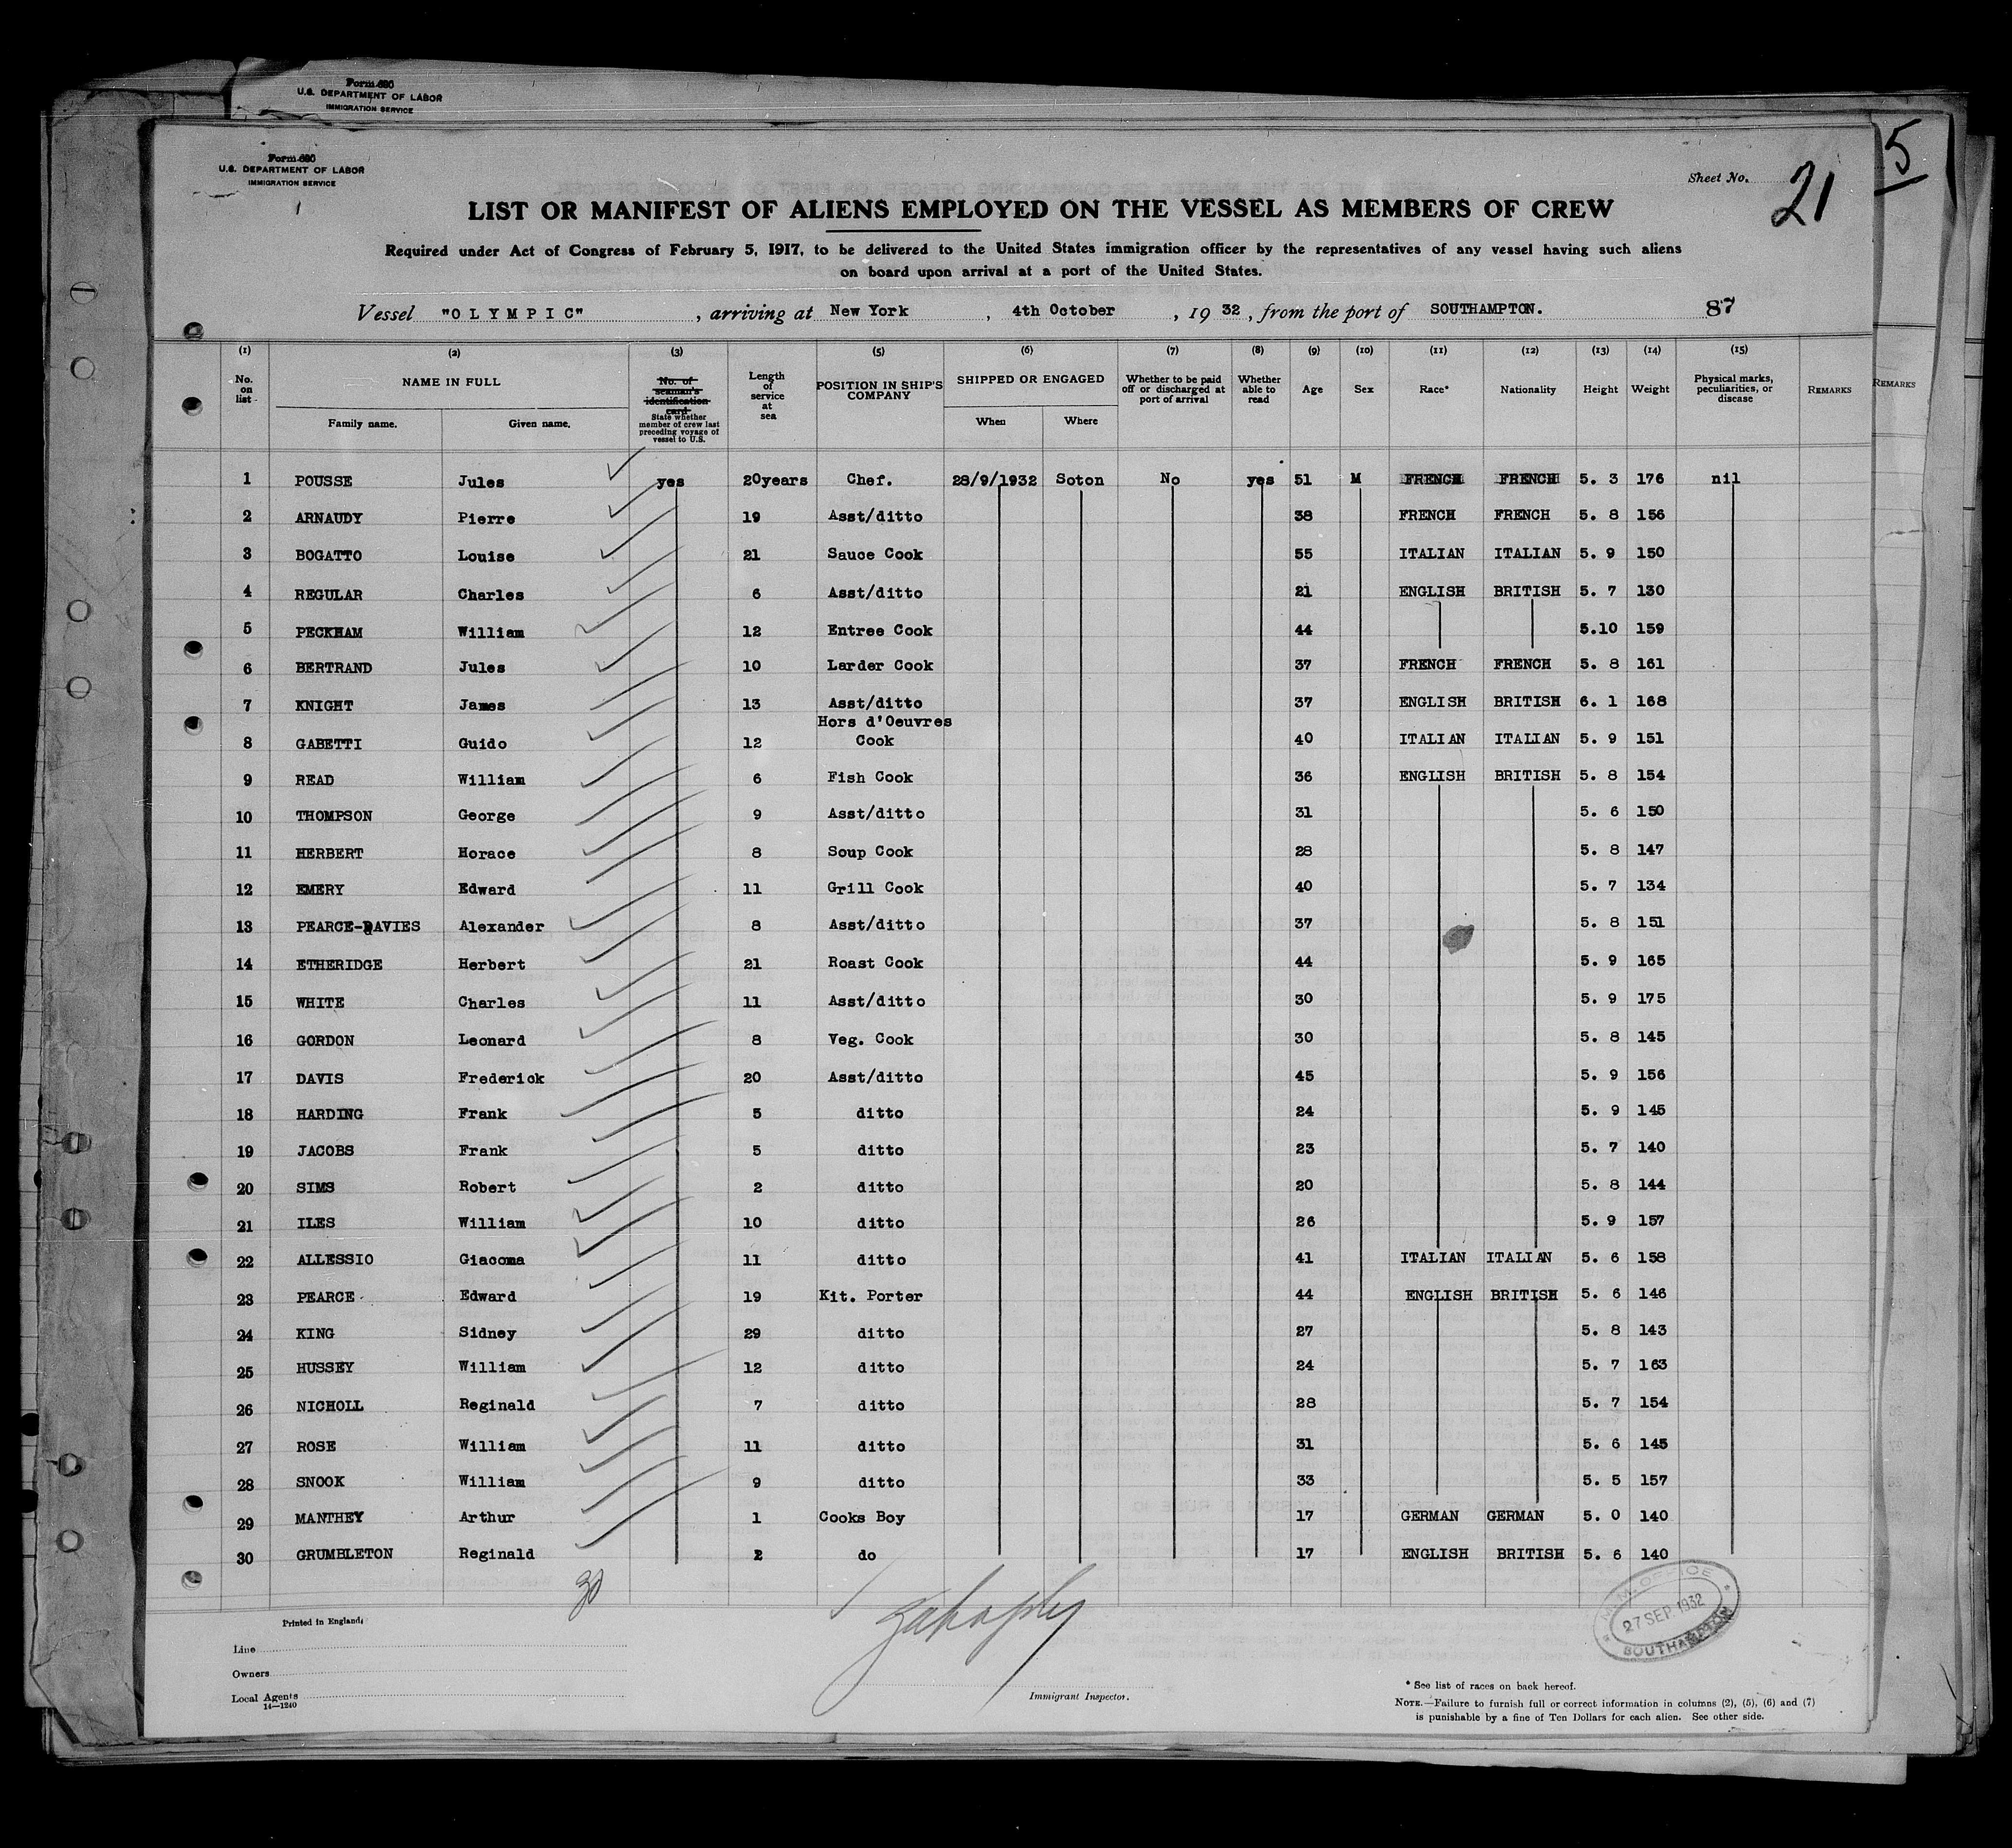 Form 680
U.S. DEPARTMENT OF LABOR
IMMIGRATION SERVICE
5
Form 680
U.S. DEPARTMENT OF LABOR
IMMIGRATION SERVICE
Sheet No. 21
LIST OR MANIFEST OF ALIENS EMPLOYED ON THE VESSEL AS MEMBERS OF CREW
Required under Act of Congress of February 5, 1917, to be delivered to the United States immigration officer by the representatives of any vessel having such aliens
on board upon arrival at a port of the United States.
Vessel "OLYMPIC", arriving at New York, 4th October, 1932, from the port of SOUTHAMPTON. 87
(1) (2) (3) (5) (6) (7) (8) (9) (10) (11) (12) (13) (14) (15)
No. on list NAME IN FULL Family name. Given name. No. of seaman's identification card State whether member of crew last preceding voyage of vessel to U.S. Length of service at sea POSITION IN SHIP'S COMPANY SHIPPED OR ENGAGED When Where Whether to be paid off or discharged at port of arrival Whether able to read Age Sex Race* Nationality Height Weight Physical marks, peculiarities, or disease REMARKS REMARKS
1 POUSSE Jules yes 20years Chef. 28/9/1932 Soton No yes 51 M FRENCH FRENCH 5. 3 176 nil
2 ARNAUDY Pierre 19 Asst/ditto 38 FRENCH FRENCH 5. 8 156
3 BOGATTO Louise 21 Sauce Cook 55 ITALIAN ITALIAN 5. 9 150
4 REGULAR Charles 6 Asst/ditto 21 ENGLISH BRITISH 5. 7 130
5 PECKHAM William 12 Entree Cook 44 5.10 159
6 BERTRAND Jules 10 Larder Cook 37 FRENCH FRENCH 5. 8 161
7 KNIGHT James 13 Asst/ditto 37 ENGLISH BRITISH 6. 1 168
8 GABETTI Guido 12 Hors d'Oeuvres Cook 40 ITALIAN ITALIAN 5. 9 151
9 READ William 6 Fish Cook 36 ENGLISH BRITISH 5. 8 154
10 THOMPSON George 9 Asst/ditto 31 5. 6 150
11 HERBERT Horace 8 Soup Cook 28 5. 8 147
12 EMERY Edward 11 Grill Cook 40 5. 7 134
13 PEARCE-DAVIES Alexander 8 Asst/ditto 37 5. 8 151
14 ETHERIDGE Herbert 21 Roast Cook 44 5. 9 165
15 WHITE Charles 11 Asst/ditto 30 5. 9 175
16 GORDON Leonard 8 Veg. Cook 30 5. 8 145
17 DAVIS Frederick 20 Asst/ditto 45 5. 9 156
18 HARDING Frank 5 ditto 24 5. 9 145
19 JACOBS Frank 5 ditto 23 5. 7 140
20 SIMS Robert 2 ditto 20 5. 8 144
21 ILES William 10 ditto 26 5. 9 157
22 ALLESSIO Giacoma 11 ditto 41 ITALIAN ITALIAN 5. 6 158
23 PEARCE Edward 19 Kit. Porter 44 ENGLISH BRITISH 5. 6 146
24 KING Sidney 29 ditto 27 5. 8 143
25 HUSSEY William 12 ditto 24 5. 7 163
26 NICHOLL Reginald 7 ditto 28 5. 7 154
27 ROSE William 11 ditto 31 5. 6 145
28 SNOOK William 9 ditto 33 5. 5 157
29 MANTHEY Arthur 1 Cooks Boy 17 GERMAN GERMAN 5. 0 140
30 GRUMBLETON Reginald 2 do 17 ENGLISH BRITISH 5. 6 140
30
M.M. OFFICE
27 SEP 1932
SOUTHAMPTON
Printed in England.
Line
Owners
Local Agents
14—1240
Immigrant Inspector.
* See list of races on back hereof.
NOTE.—Failure to furnish full or correct information in columns (2), (5), (6) and (7)
is punishable by a fine of Ten Dollars for each alien. See other side.